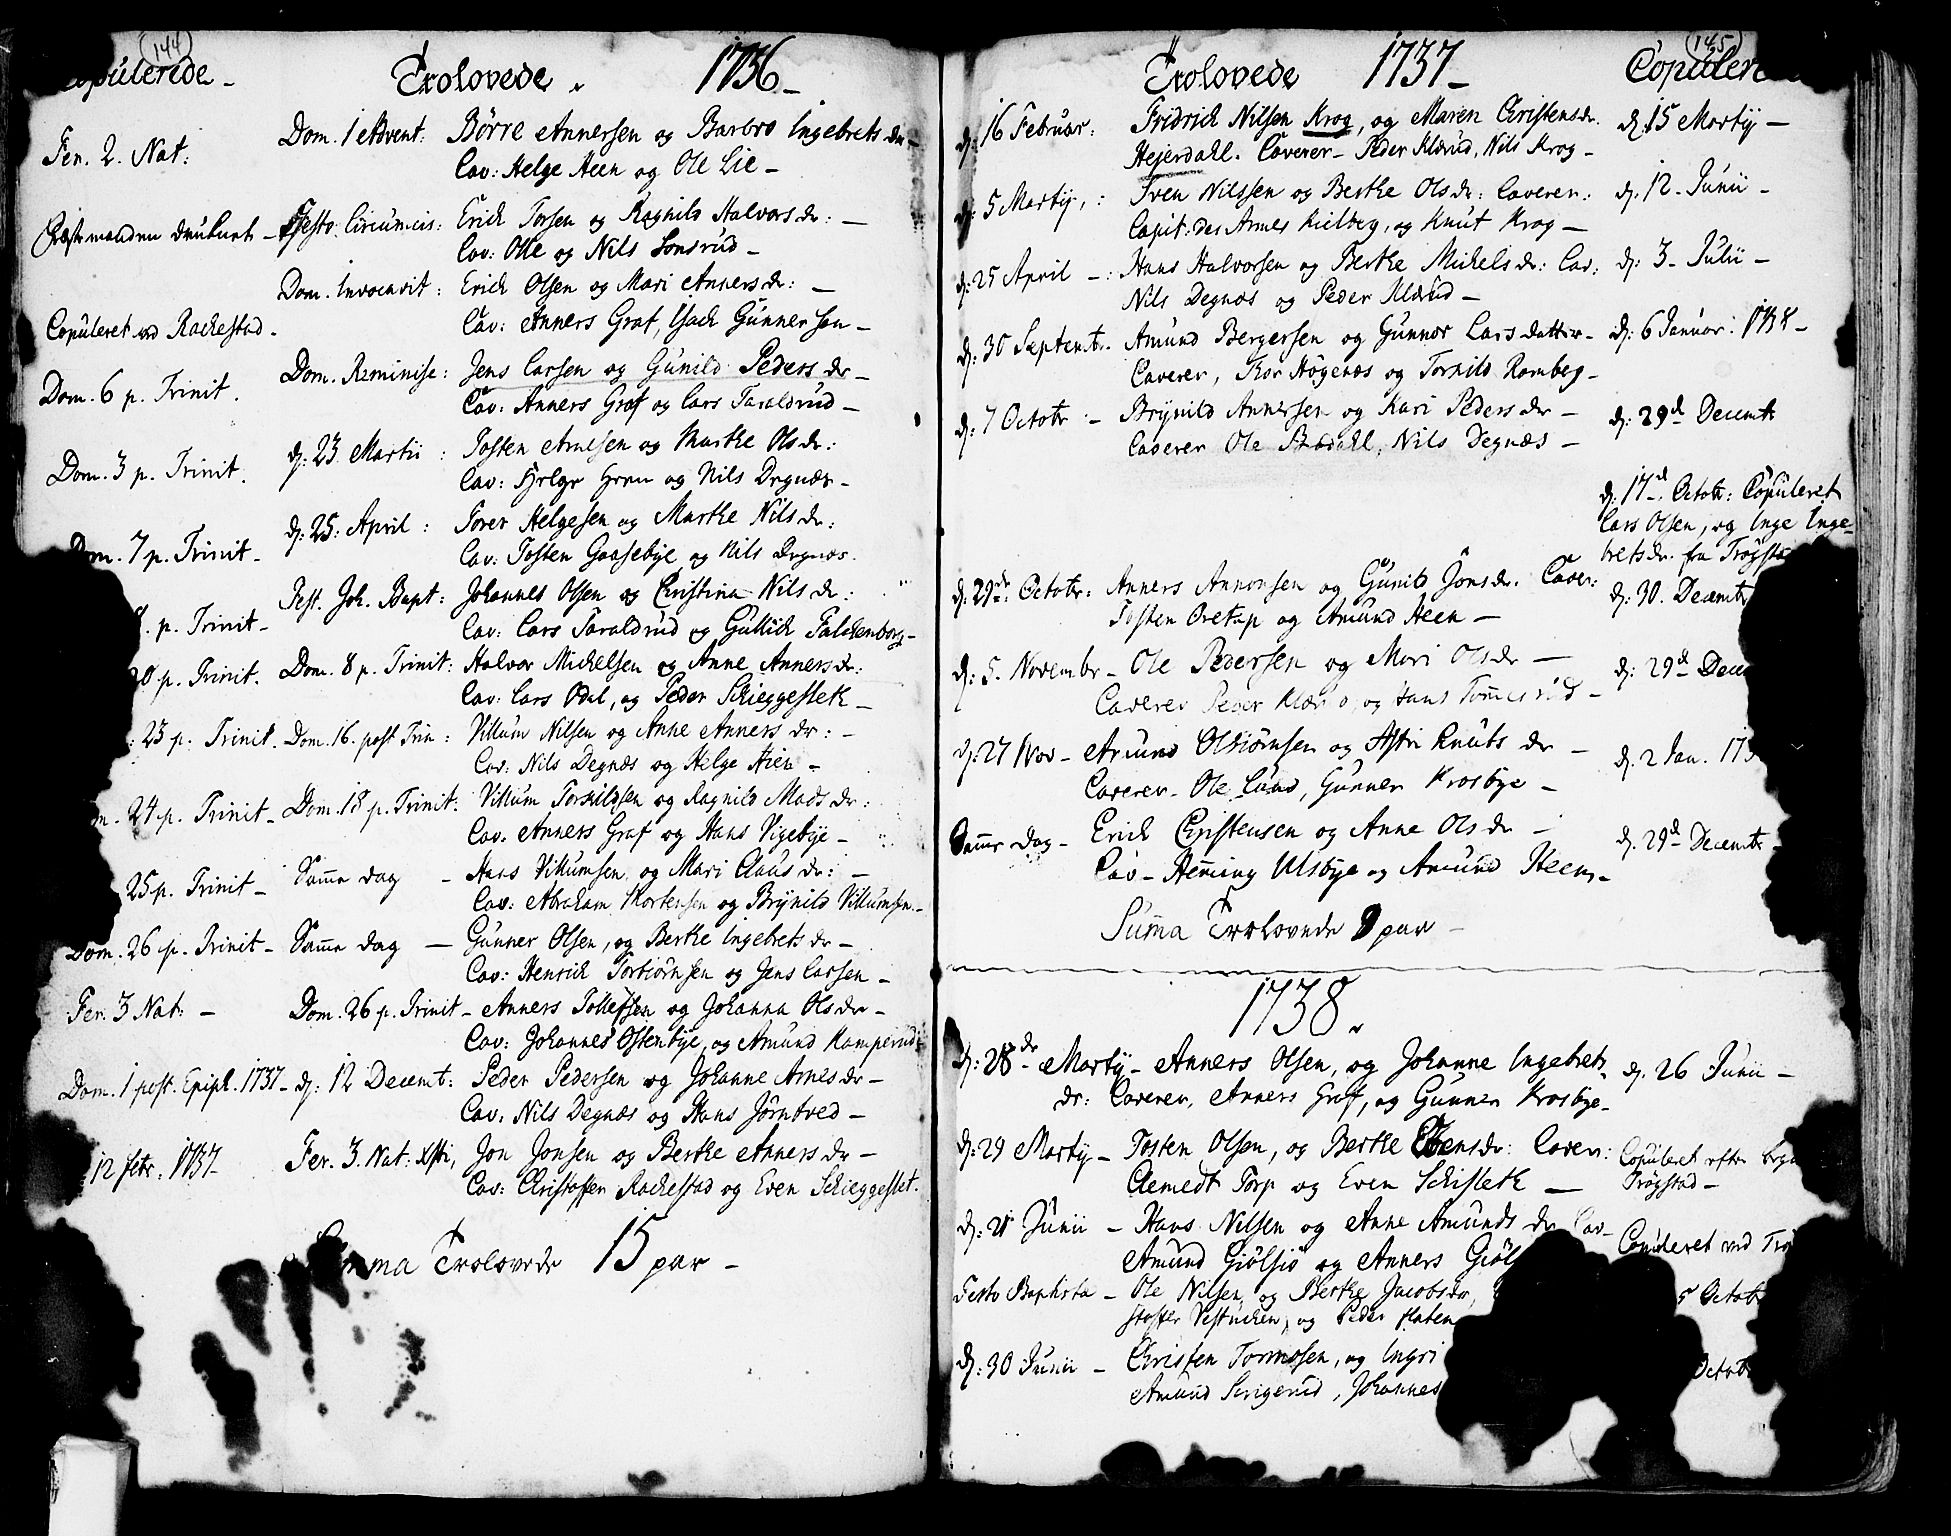 (144)
Copulerede - Trolovede. 1736 -
Fer. 2. Nat: Dom. 1 Advent: Börre Annersen og Barbro Ingebrets dr -
Cav: Helge Heen og Ole Lie -
Festo Circumcis: Erich Torsen og Ragnild Halvors dr: -
Cav: Olle og Nils Sonsrud -
Dom. Invocavit: Erich Olsen og Mari Anners dr: -
Copuleret ved Rachestad - Cav: Anners Graf, Isach Gunnersen -
Dom. 6 p. Trinit. Dom. Reminise: Jens Larsen og Gunild Peders dr -
Cav: Anners Graf og Lars Taraldrud -
Dom. 3 p. Trinit. d: 23 Martii: Tosten Arnesen og Marthe Ols dr:
Cav: Helge Heen og Nils Degnæs -
Dom. 7 p. Trinit - d: 25: April: Torer Helgesen og Marthe Nils dr:
Cav: Tosten Gaasebye og Nils Degnæs.
p. Trinit - Fest. Joh. Bapt: Johannes Olsen og Christina Nils dr:
Cav: Lars Taraldrud og Gullich Falchenborg -
20 p. Trinit. Dom. 8 p. Trinit: Halvor Michelsen og Anne Anners dr:
Cav: Lars Odal, og Peder Schieggesleth -
: 23 p. Trinit. Dom. 16. post Trin: Villum Nilsen og Anne Anners dr: -
Cav: Nils Degnæs og Helge Hien -
24 p. Trinit - Dom. 18 p. Trinit: Villum Torkildsen og Ragnild Mads dr:
Cav: Anners Graf og Hans Vigebye -
25 p. Trinit - Samme dag - Hans Villumsen og Mari Claus dr: -
Cav: Abraham Mortensen og Brynild Villumsen -
Dom. 26 p. Trinit - Samme dag - Gunner Olsen, og Berthe Ingebrets dr -
Cav: Henrich Torbiörnsen og Jens Larsen -
Fer. 3 Nat: - Dom. 26 p. Trinit - Anners Tollefsen og Johanna Ols dr -
Cav: Johannes Ostenbye, og Amund Kamperud
Dom. 1 post. Epiph. 1737 - d: 12 Decemb: Peder Pedersen og Johanne Arnes dr -
Cav: Nils Degnæs og Hans Jörntved -
12 Febr. 1737 - Fer. 3. Nat: Xsti, Jon Jonsen og Berthe Anners dr -
Cav: Christoffer Rachestad og Even Schieggeslet.
Summa Trolovede 15 par -
(145)
Trolovede 1737 - Copuler
d: 16 Februar: Fridrich Nilsen Krog, og Maren Christensdr. d. 15 Martij -
Hejerdahl. Caverer - Peder Klærud, Nils Krog -
d: 5 Martij,: Iven Nilssen og Berthe Ols dr: Caverer: d: 12 - Junii -
Capit: des Armes Kielberg, og Knut Krog -
d: 25 April -: Hans Halvorsen og Berthe Michels dr: Cav: d: 3 - Julii -
Nils Degnæs og Peder Klærud -
d: 30 Septemb. Amund Bergersen og Gunnor Lars datter - d: 6 Januar: 1738 -
Caverer, Tor Högenæs og Torkild Romberg -
d: 7 Octobr - Brynild Annersen og Kari Peders dr - d: 29d Decemb
Caverer Ole Brædahl, Nils Degnæs -
d: 17d. Octobr: Copuleret
Lars Olsen, og Inge Inge-
brets dr. fra Trögstad
d: 29de Octobr: Anners Annersen og Gunild Jons dr. Caver: d: 30. Decembr
Tosten Oretap og Amund Heen -
d: 5. Novembr - Ole Pedersen og Mari Ols dr - d: 29d Dece
Caverer Peder Klærud, og Hans Tommesrud -
d: 27 Nov - Amund Olbiörnsen og Astri Knuts dr - d. 2 Jan. 173
Caverer - Ole Lund, Gunner Krosbye -
Samme dag - Erich Christensen og Anne Ols dr - d. 29d Decembr -
Cav - Heming Ulsbye og Amund Heen -
Summa Trolovede 9 par -
1738.
d: 28de Martij - Anners Olsen, og Johanne Ingebrets- d. 26 Junii -
dr: Caverer, Anners Graf, og Gunner Krosbye -
d: 29 Martij - Tosten Olsen, og Berthe Evensdr: Caver: Copuleret efter
Clemedt Torp og Even Schisleth - Trögstad -
d: 21 Junii - Hans Nilsen og Anne Amunds dr Cav - Copuleret ved Trö
Amund Giölsiö og Anners Giöl
Festo Baptista - Ole Nilsen og Berthe Jacobsdr, 5 Octobr
stoffer Vestuchen, og Peder Platen
d: 30 Junii - Christen Tormosen, og Ingri Octob
Amund Serigerud, Johannes